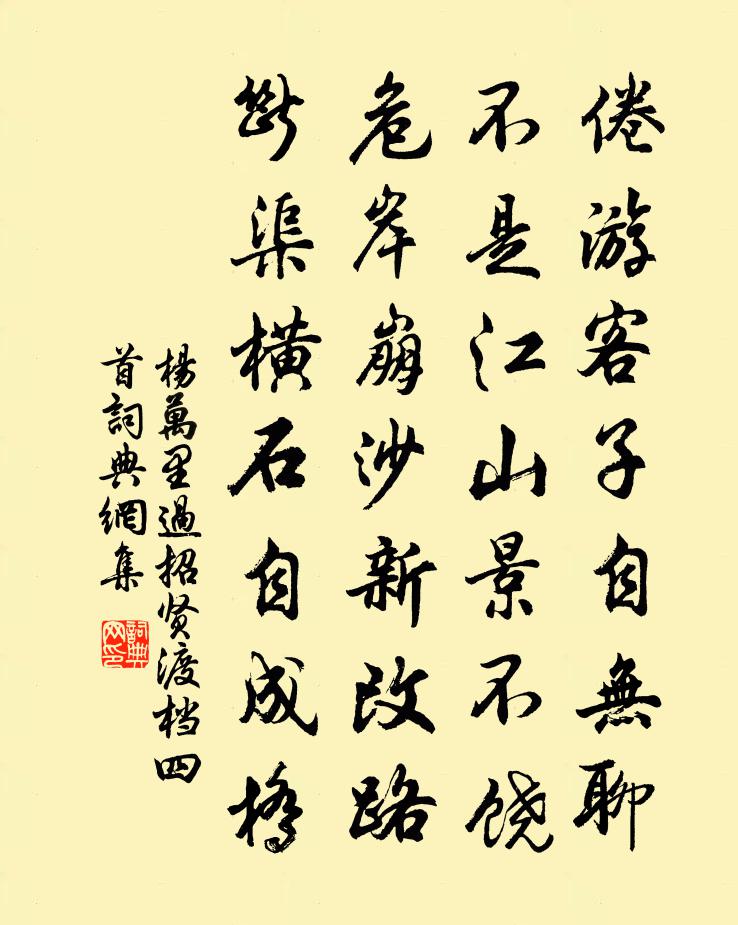 倦游客子自無聊
不是江山景不饶
危岸崩沙新改路
斷渠橫石自成橋
楊萬里過招贤渡档四
首詞典網集
詞典网印